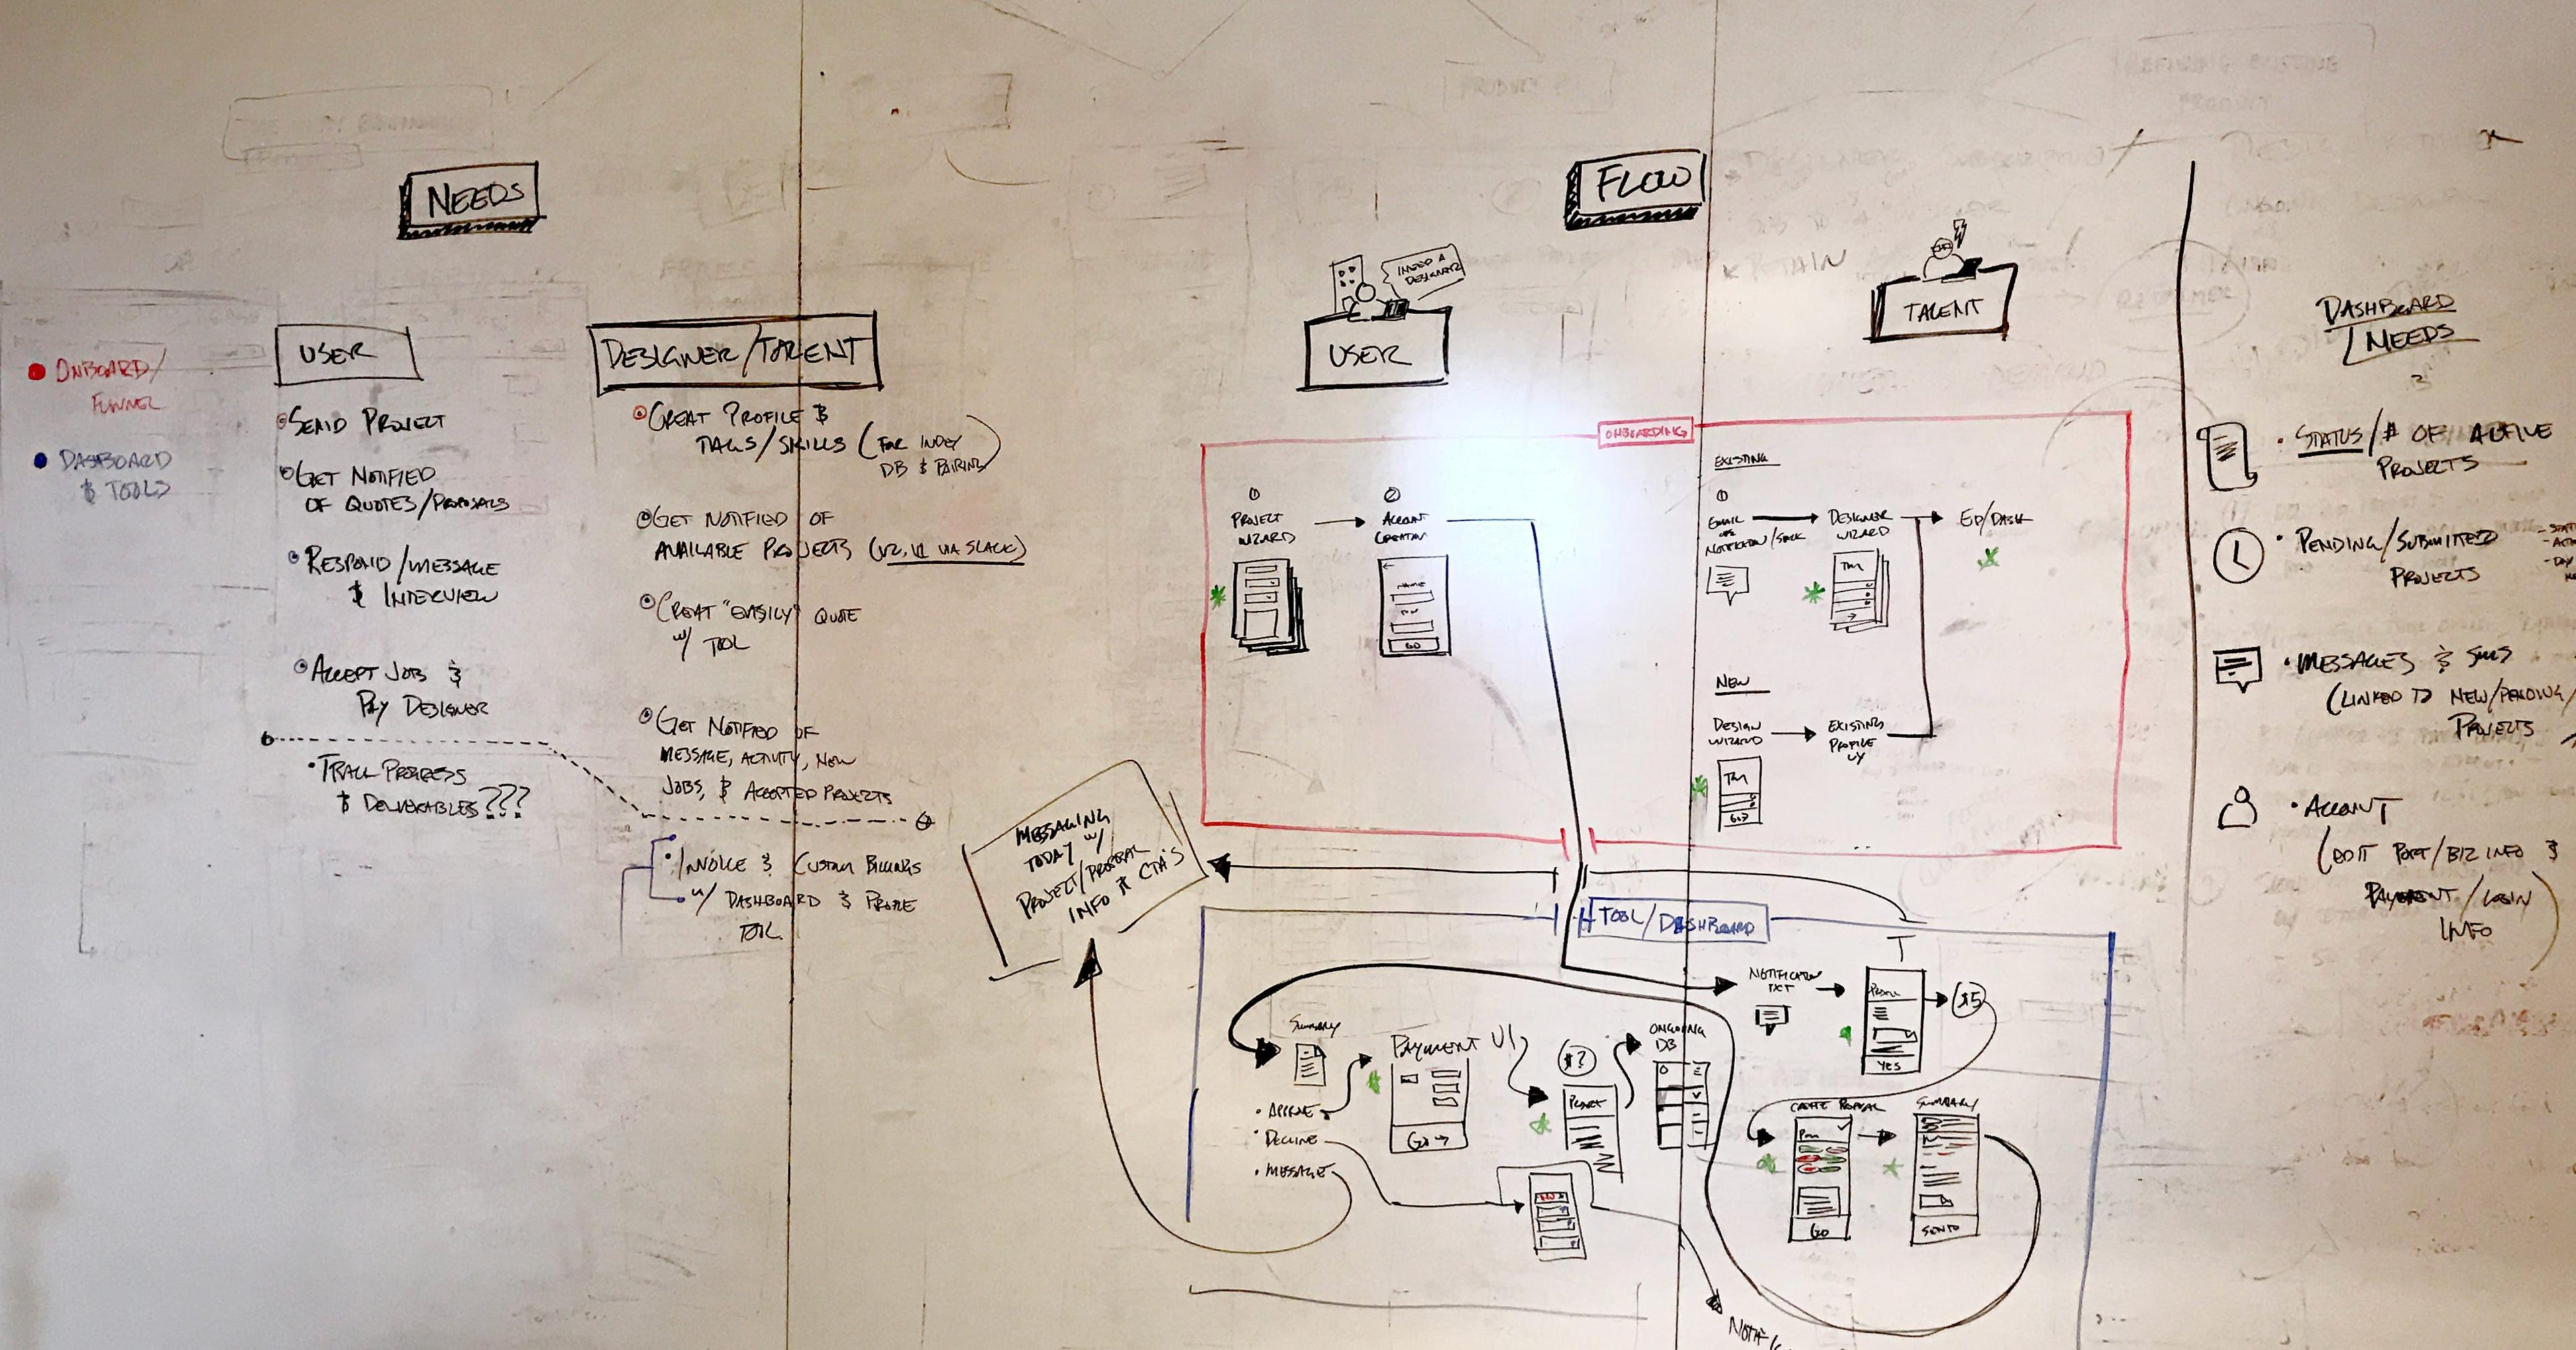 NEEDS
ONBOARD/
FUNNEL
DASHBOARD
& TOOLS
USER
SEND PROJECT
GET NOTIFIED
OF QUOTES/PROPOSALS
RESPOND/MESSAGE
& INTERVIEW
ACCEPT JOB &
PAY DESIGNER
TRACK PROGRESS
& DELIVERABLES???
DESIGNER/TALENT
CREAT PROFILE &
TAGS/SKILLS (FOR INDEX/
DB & PAIRING)
GET NOTIFIED OF
AVAILABLE PROJECTS (V2, V1 VIA SLACK)
CREAT "EASILY" QUOTE
W/ TOOL
GET NOTIFIED OF
MESSAGE, ACTIVITY, NEW
JOBS, & ACCEPTED PROJECTS
INVOICE & CUSTOM BILLINGS
W/ DASHBOARD & PROFILE
TOOL
FLOW
I NEED A
DESIGNER
USER
TALENT
RETAIN
ONBOARDING
1
PROJECT
WIZARD
2
ACCOUNT
CREATION
NAME
GO
EXISTING
1
EMAIL
NOTIFICATION/SLACK
DESIGNER
WIZARD
ED/DASH
NEW
DESIGN
WIZARD
EXISTING
PROFILE
GO
MESSAGING
TODAY W/
PROJECT/PROPOSAL
INFO & CTA'S
TOOL/DASHBOARD
SUMMARY
• APPROVE
• DECLINE
• MESSAGE
PAYMENT UI
GO →
$?
PROJECT
ONGOING
DB
NOTIFICATION
TXT
YES
$5
CREATE PROPOSAL
GO
SUMMARY
SEND
DASHBOARD
NEEDS
• STATUS/# OF ACTIVE
PROJECTS
• PENDING/SUBMITTED
PROJECTS
• MESSAGES & SMS
(LINKED TO NEW/PENDING/
PROJECTS
• ACCOUNT
(EDIT PORT/BIZ INFO &
PAYMENT/LOGIN
INFO)